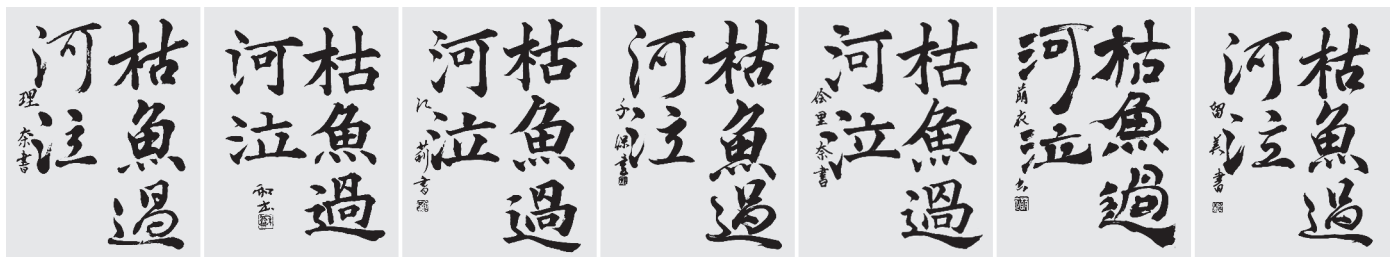 枯魚過
河泣
理奈書
枯魚過
河泣
枯魚過
河泣
書
枯魚過
河泣
千
書
枯魚過
河泣
絵里奈書
枯魚過
河泣
萌衣
枯魚過
河泣
留美書